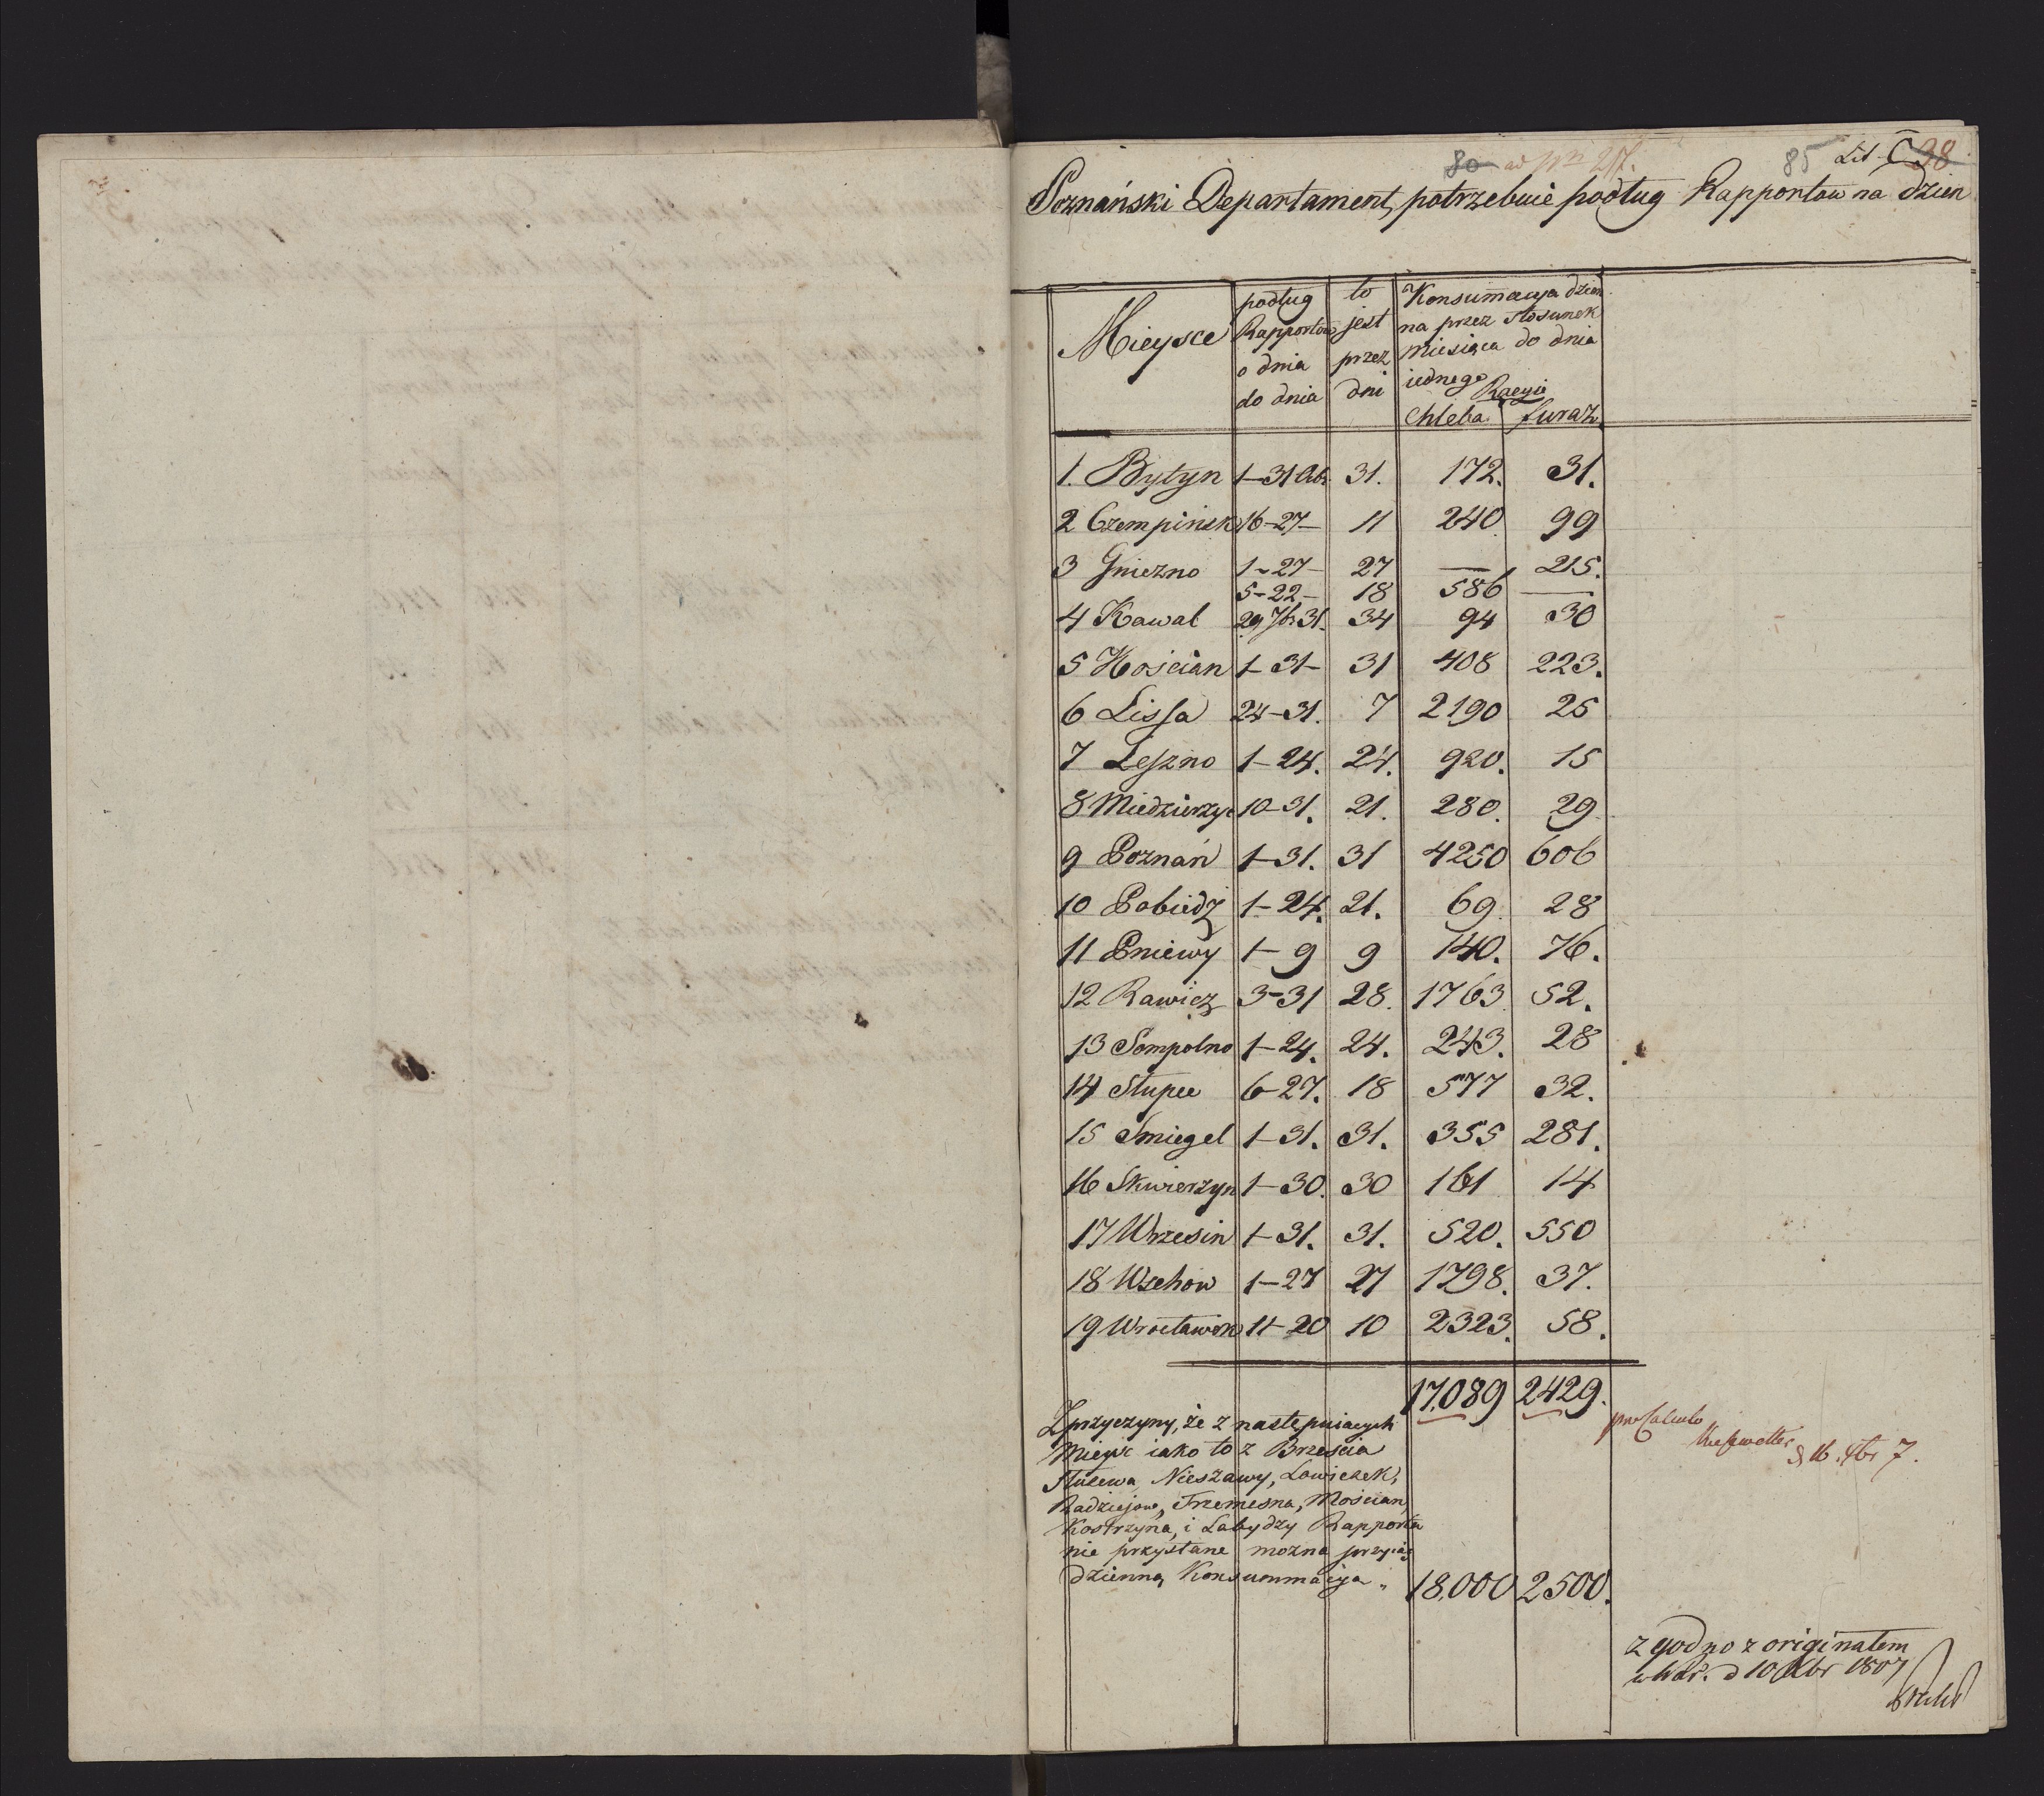 80 ad 85 Lit. C 38
Poznański Departament, potrzebuie podług Rapportow na dzien
Mieysce
podług Rapportow o dnia do dnia
to jest przez dni
Konsumacyja dzien
na przez stosunek
miesiąca do dnia
iednego Racyie
Chleba furaz.
1. Bytyn 1–31 8br. 31. 172. 31.
2 Czempinsk 16–27– 11 240. 99
3 Gniezno 1–27– 27 — 215.
5–22– 18 586 —
4 Kawal 29 7br 31. 34 94 30
5 Kościan 1–31– 31 408 223.
6 Lissa 24–31. 7 2190 25
7 Leszno 1–24. 24. 920. 15
8 Miedzierzyc 10–31. 21. 280. 29
9 Poznań 1–31. 31 4250 606
10 Pobiedz 1–24. 21. 69. 28
11 Pniewy 1–9 9 140. 76.
12 Rawicz 3–31 28. 1763 52.
13 Sompolno 1–24. 24. 243. 28
14 Slupce 6–27. 18 577 32.
15 Smiegel 1–31. 31. 355 281.
16 Skwierzyn 1–30. 30 161 14
17 Wrzesin 1–31. 31. 520. 550
18 Wschow 1–27 27 1798. 37.
19 Wrocławek 11–20 10 2323. 58.
17.089 2429.
pro Calculo
d 16. 7.
Z przyczyny, że z następuiących
Mieysc iako to z Brzescia
Służewa, Nieszawy, Lowiczek,
Radziejowa, Trzemesna, Mościan,
Kostrzyna, i Labydzy Rapporta
nie przysłane można przyiąć
dzienną Konsummacyja „ 18.000 2500.
zgodno z originałem
d 10 Xbr 1807